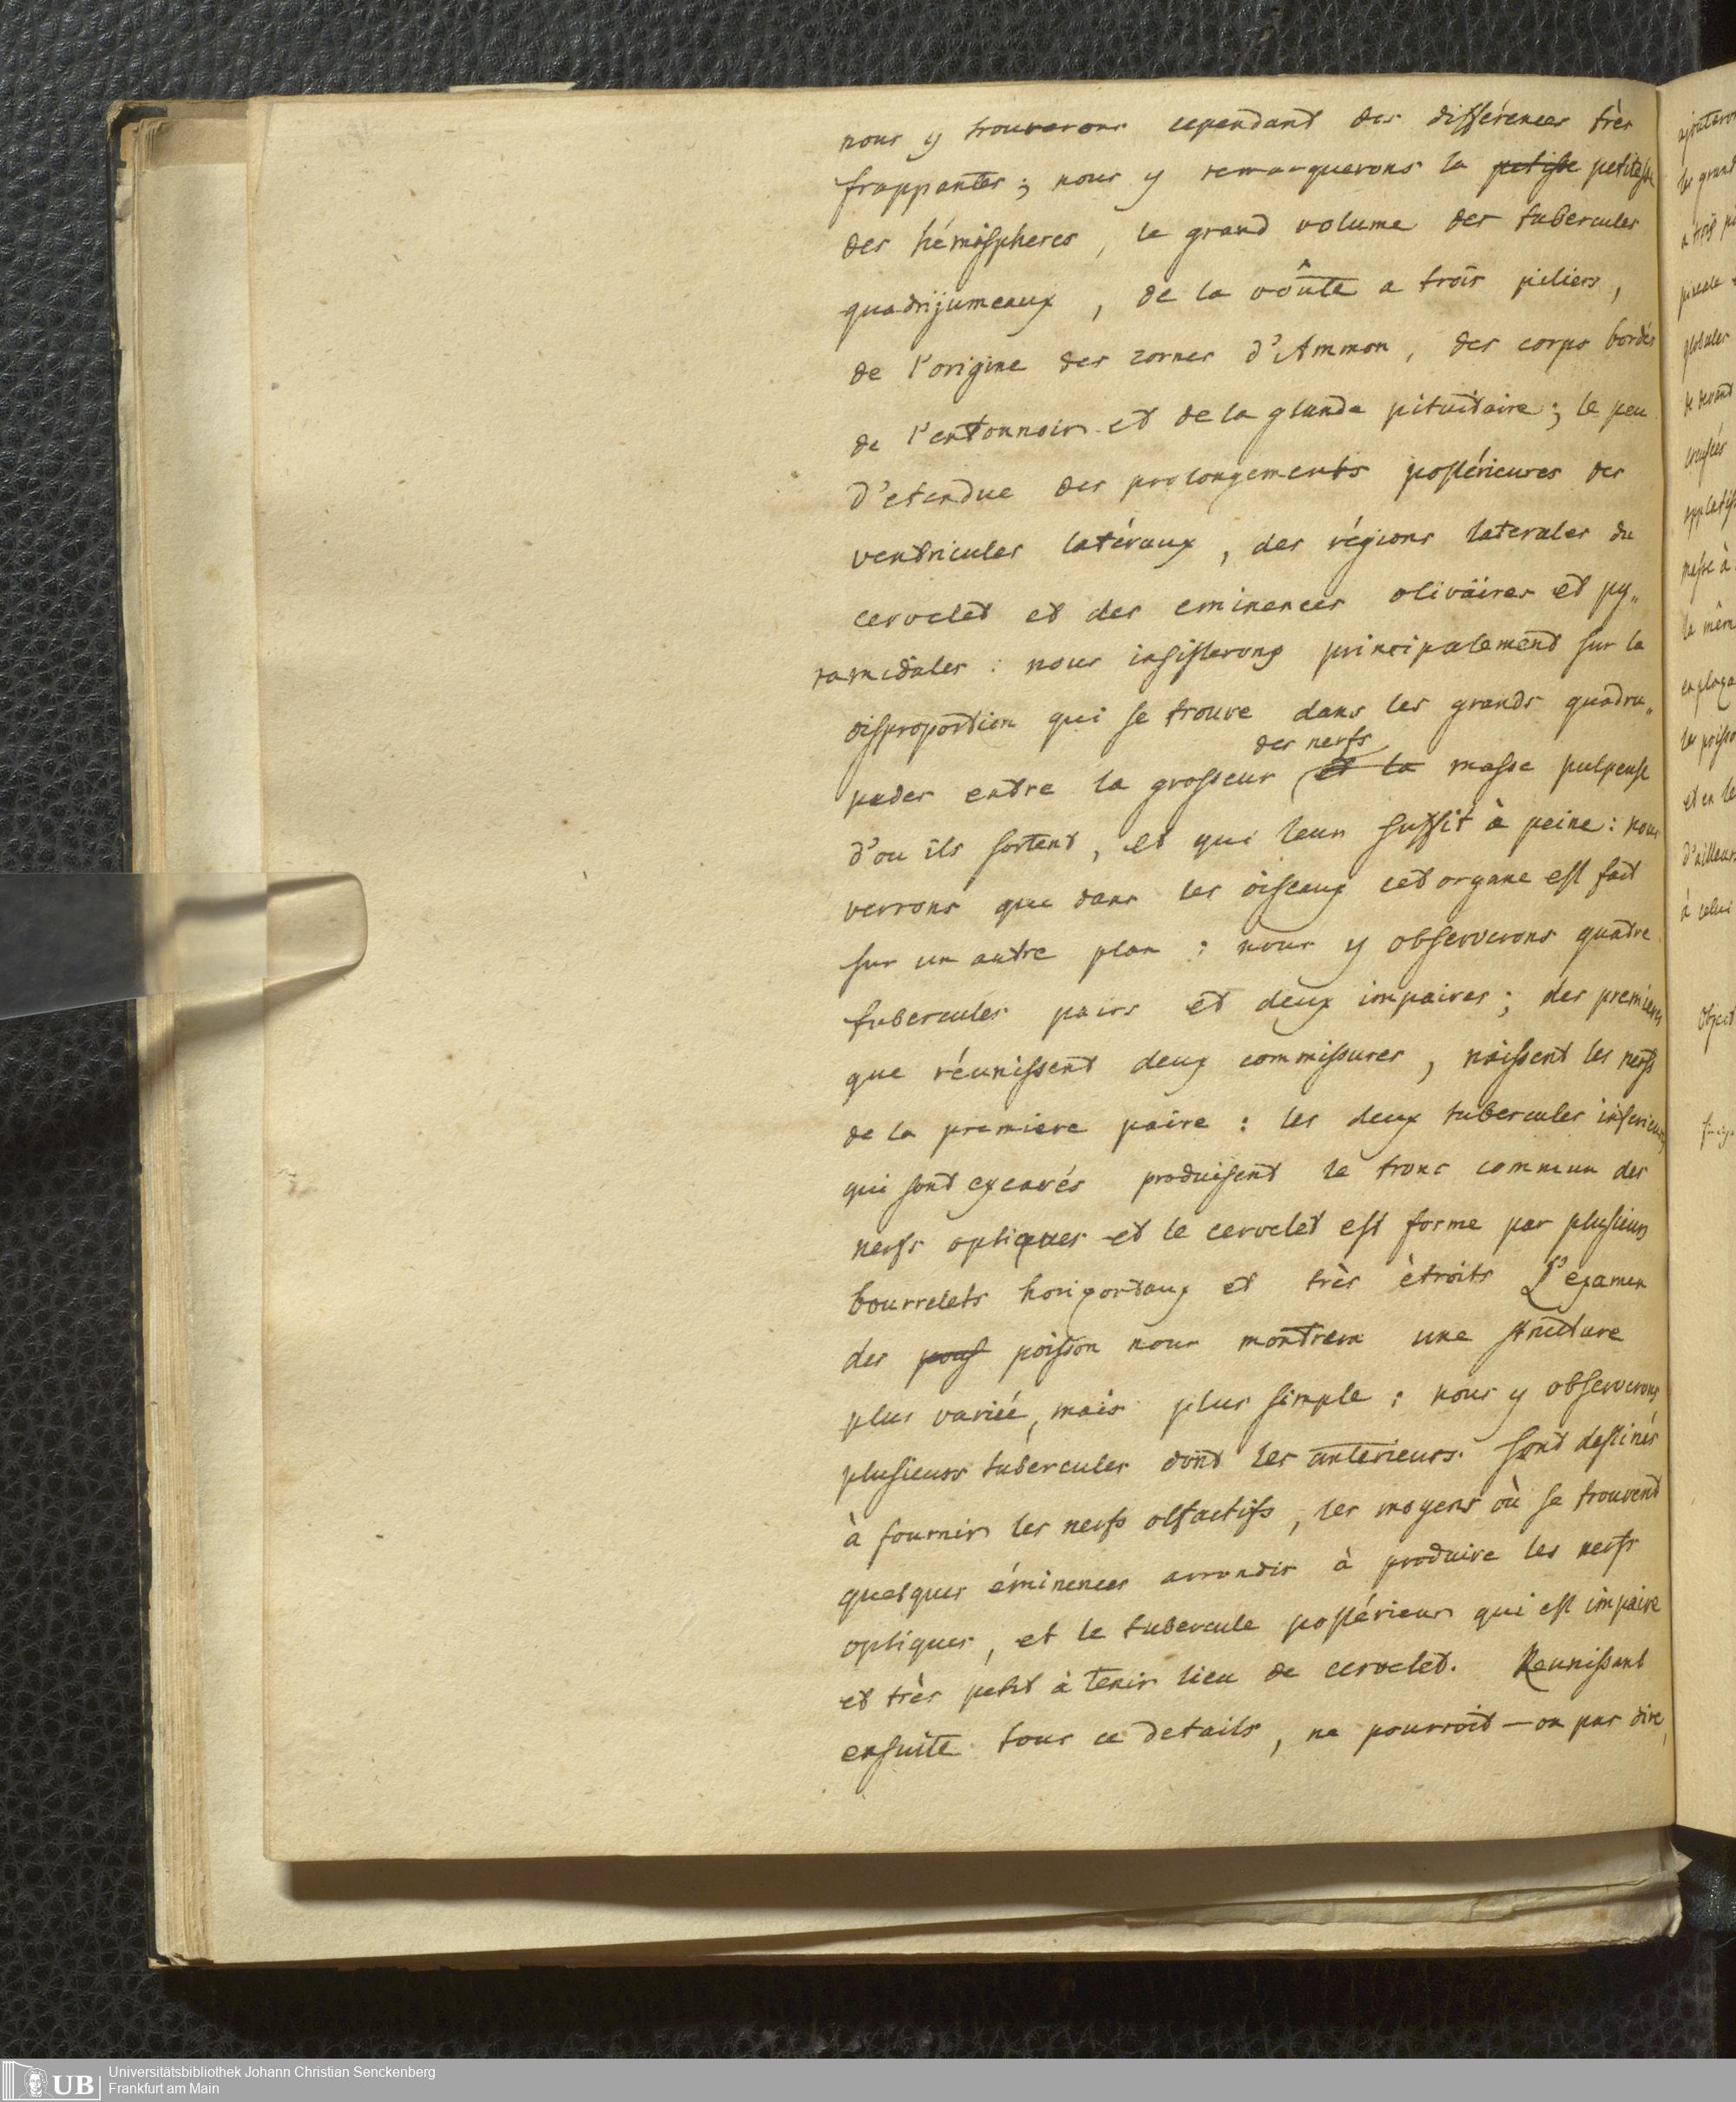 nous y trouverons cependant des différences très
frappantes; nous y remarquerons la petisse petitesse
des hémispheres, le grand volume des tubercules
quadrijumeaux, de la voûte a trois piliers,
de l'origine des cornes d'Ammon, des corps bordés
de l'entonnoir et de la glande pituitaire; le peu
d'etendue des prolongements postérieures des
ventricules latéraux, des régions laterales du
cervelet et des eminences olivaires et py„
ramidales: nous insisterons principalement sur la
disproportion qui se trouve dans les grands quadru„
des nerfs
pedes entre la grosseur et la masse pulpeuse
d'ou ils sortent, et qui leur suffit à peine: nous
verrons que dans les oiseaux cet organe est fait
sur un autre plan: nous y observerons quatre
tubercules pairs et deux impaires; des premiers
que réunissent deux commissures, naissent les nerfs
de la premiere paire: les deux tubercules inferieurs,
qui sont excavés produisent le tronc commun des
nerfs optiques et le cervelet est forme par plusieurs
bourrelets horizontaux et très ètroits L'examen
des pouss poisson nous montrera une structure
plus variée, mais plus simple: nous y observerons
plusieurs tubercules dont les anterieurs sont destinés
à fournir les nerfs olfactifs, les moyens où se trouvent
quelques éminences arrondis à produire les nerfs
optiques, et le tubercule postérieur qui est impaire
et très petit à tenir lieu de cervelet. Reunissant
ensuite tous ce details, ne pourroit-on pas dire,
ajouteron
les grand
a trois pi
pineale
globules
de devant
croisés
applatiss
masse à
la mêm
en plaça
les poisso
et en le
d'ailleurs
à celui
Object
UB
Universitätsbibliothek Johann Christian Senckenberg
Frankfurt am Main